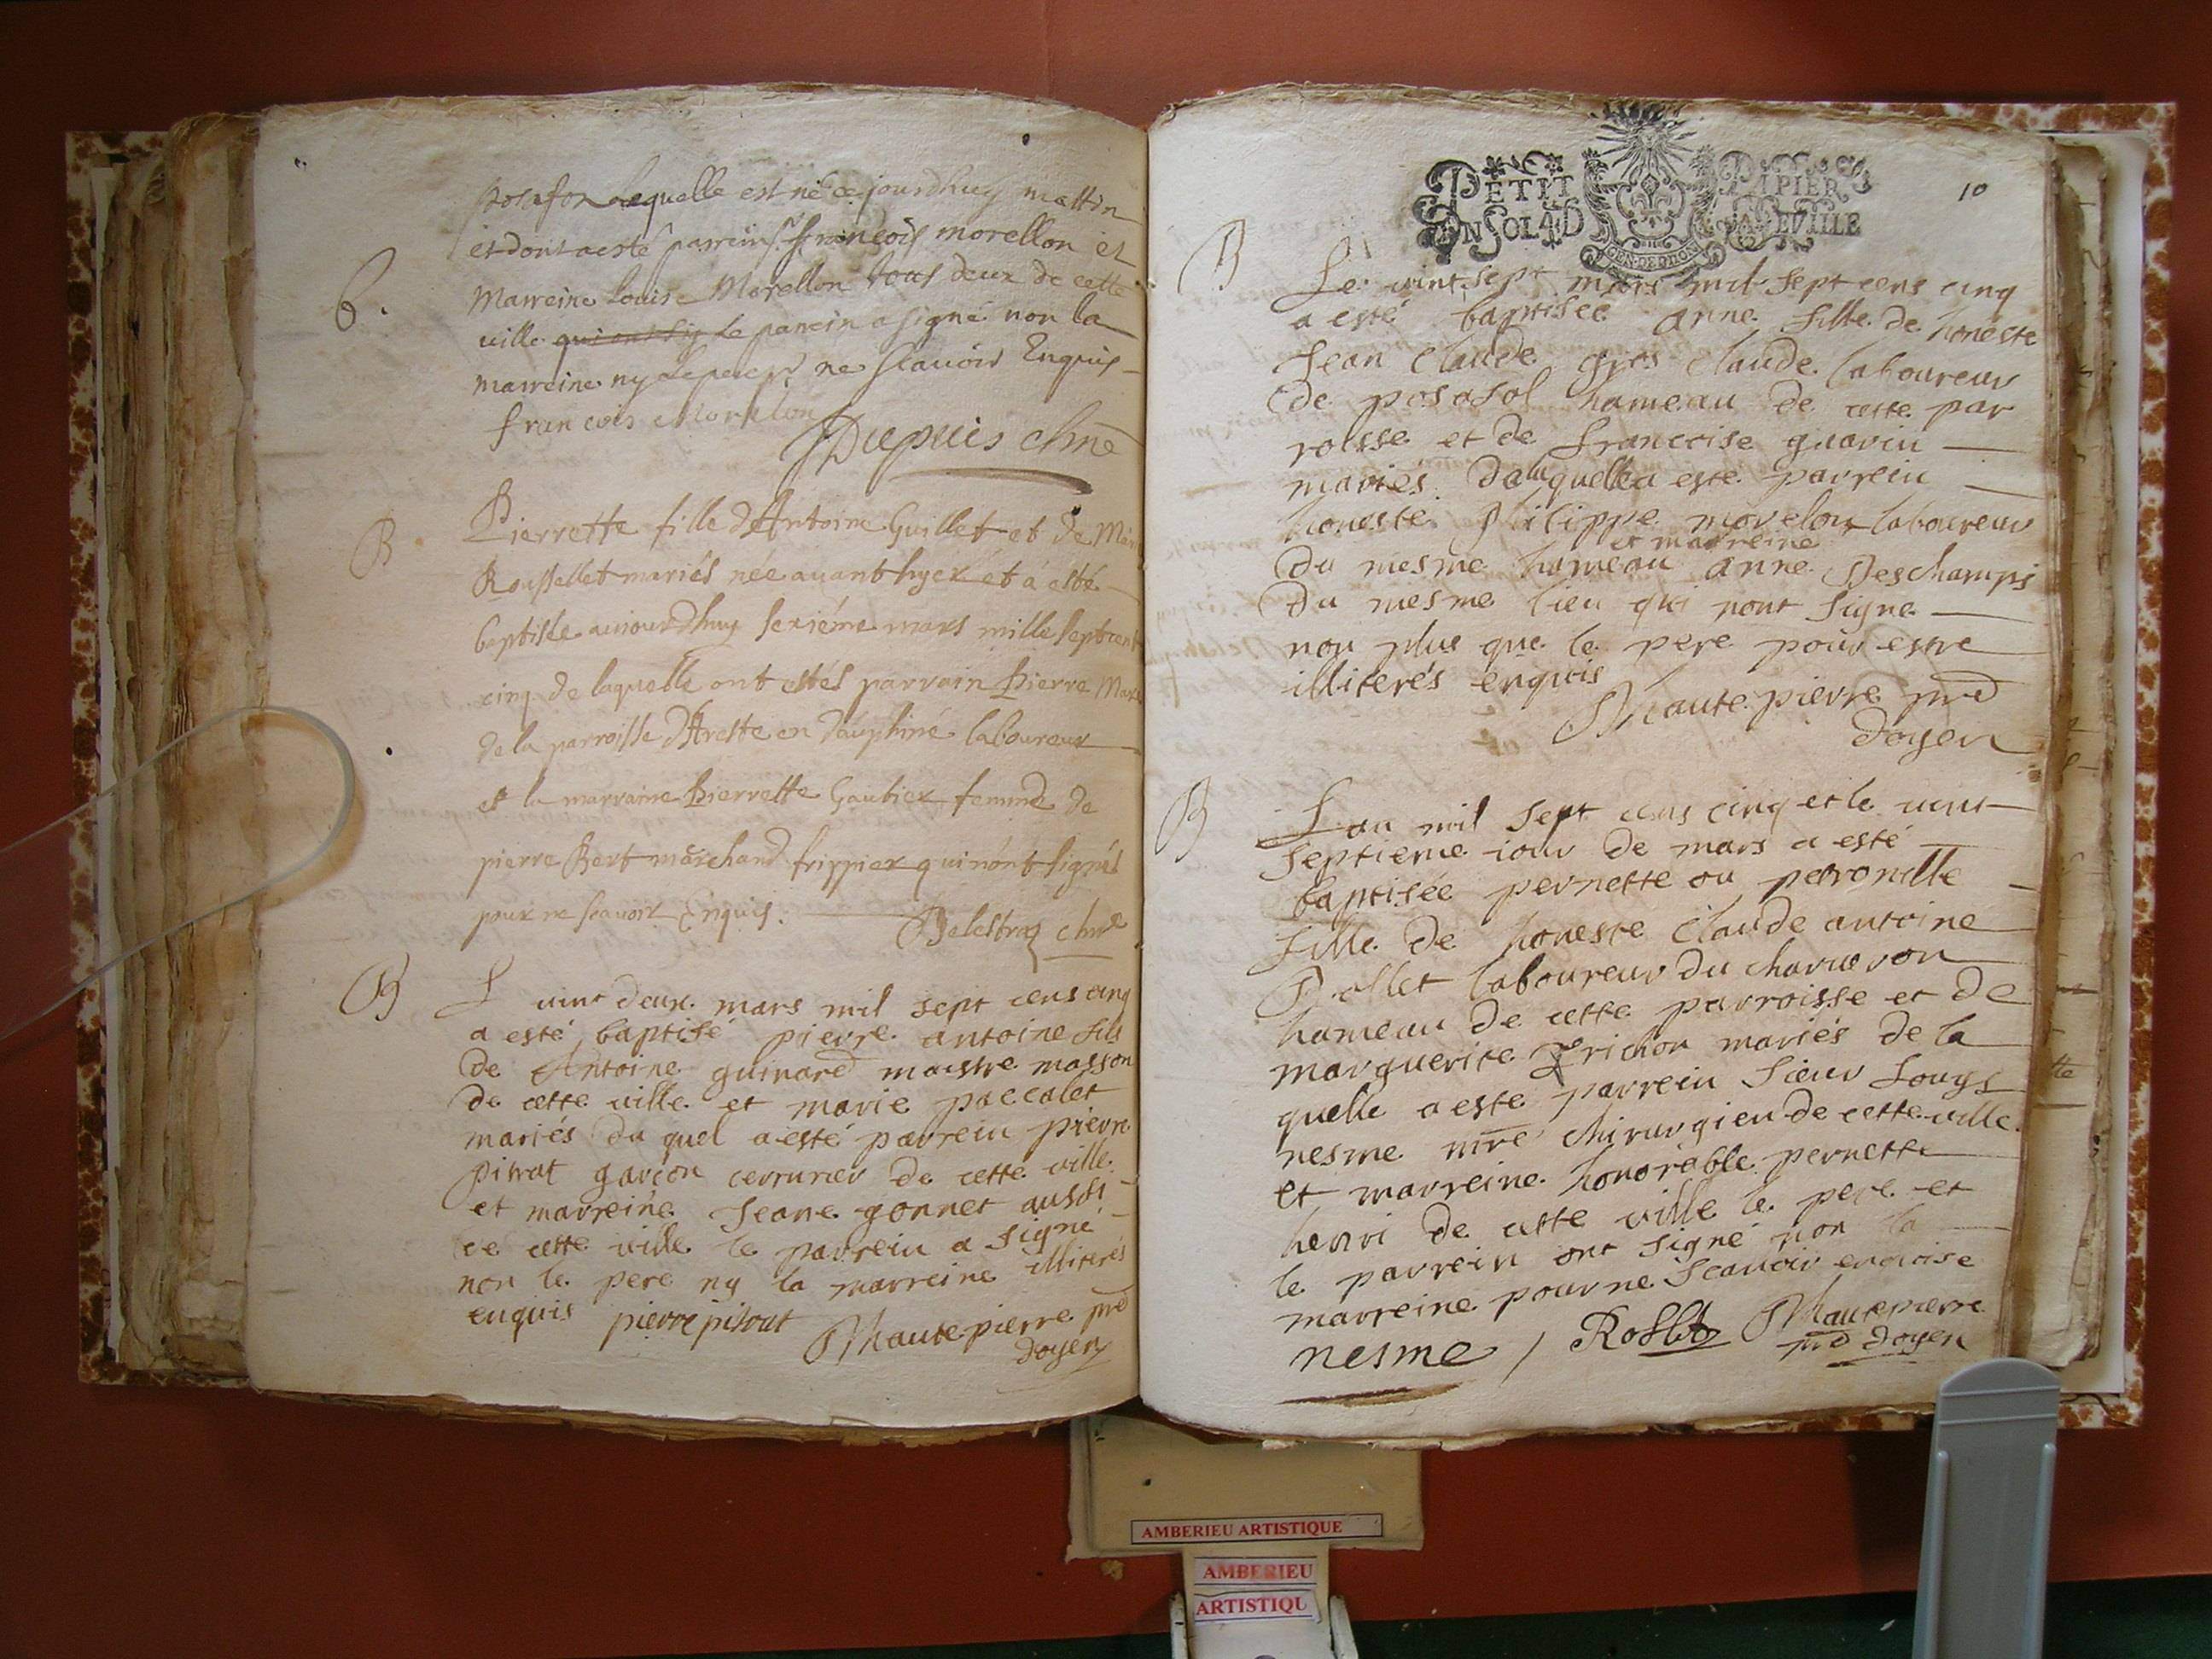 lequelle est né ce jourdhuy mattin
et dont a esté parrein sr françois morellon et
Marreine Louise Morellon tous deux de cette
6.
ville qui ont sig le parrein a signé non la
marreine ny le pere pr ne scavoir Enquis
françois Morellon
Dupuis chne
B
Pierrette fille d'Antoine Guillet et de
Roussellet mariés née avant hyer et à esté
baptisée aujourdhuy seziéme mars mille sept cent
cinq de laquelle ont estés parrain Pierre
de la parroisse d'Arette en dauphiné laboureur
et la marraine Pierrette Gautier femme de
pierre Bert marchand frippier qui n'ont signés
pour ne scavoir Enquis.
chne
B
L vint deux mars mil sept cens cinq
a esté baptisé pierre antoine fils
de Antoine guinard maistre masson
de cette ville et marie paccalet
mariés du quel a esté parrein pierre
pitrat garçon cerrurier de cette ville
et marreine Jeane gonnet aussi
de cette ville le parrein a signé
non le pere ny la marreine illiterés
enquis pierre pitrat
Mautepierre pre
doyen
PETIT PAPIER
UN SOL 4 D LA FEUILLE
GEN. DE DIJON
10
B
Le vint sept mars mil sept cens cinq
a esté baptisee anne fille de honeste
Jean Claude gros Claude laboureur
de posafol hameau de cette par
roisse et de francoise guarin
mariés de laquelle a esté parrein
honeste Philippe morelon laboureur
et marreine
du mesme hameau anne Deschamps
du mesme lieu qui nont signe
non plus que le pere pour estre
illiterés enquis
Mautepierre pre
doyen
B
Lan mil sept cens cinq et le vint
septieme iour de mars a esté
baptisée pernette ou petronille
fille de honeste Claude antoine
laboureur du
hameau de cette parroisse et de
marguerite mariés de la
quelle a este parrein Sieur Louys
nesme mre chirurgien de cette ville
et marreine honorable pernette
henri de cette ville le pere et
le parrein ont signé non la
marreine pour ne scavoir enquise
nesme / Mautepierre
pre doyen
AMBERIEU ARTISTIQUE
AMBERIEU
ARTISTIQU